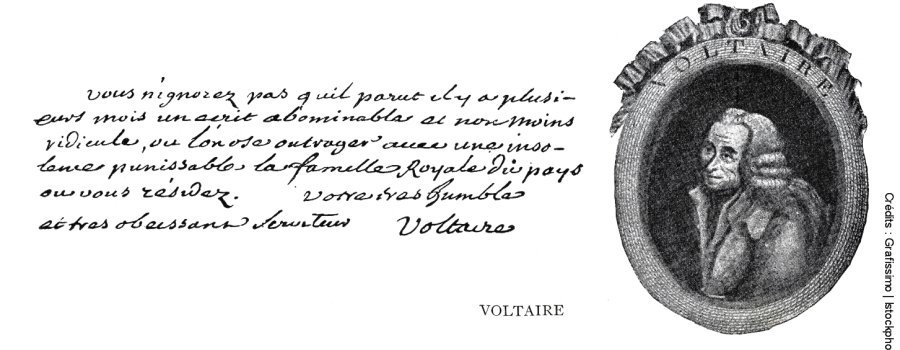 vous n'ignorez pas quil parut il y a plusi-
eurs mois un ecrit abominable et non moins
ridicule, ou l'on ose outrager avec une inso-
lence punissable la famille Royale du pays
ou vous résidez. votre tres humble
et tres obeissant serviteur Voltaire
VOLTAIRE
VOLTAIRE
Crédits : Grafissimo | Istockpho